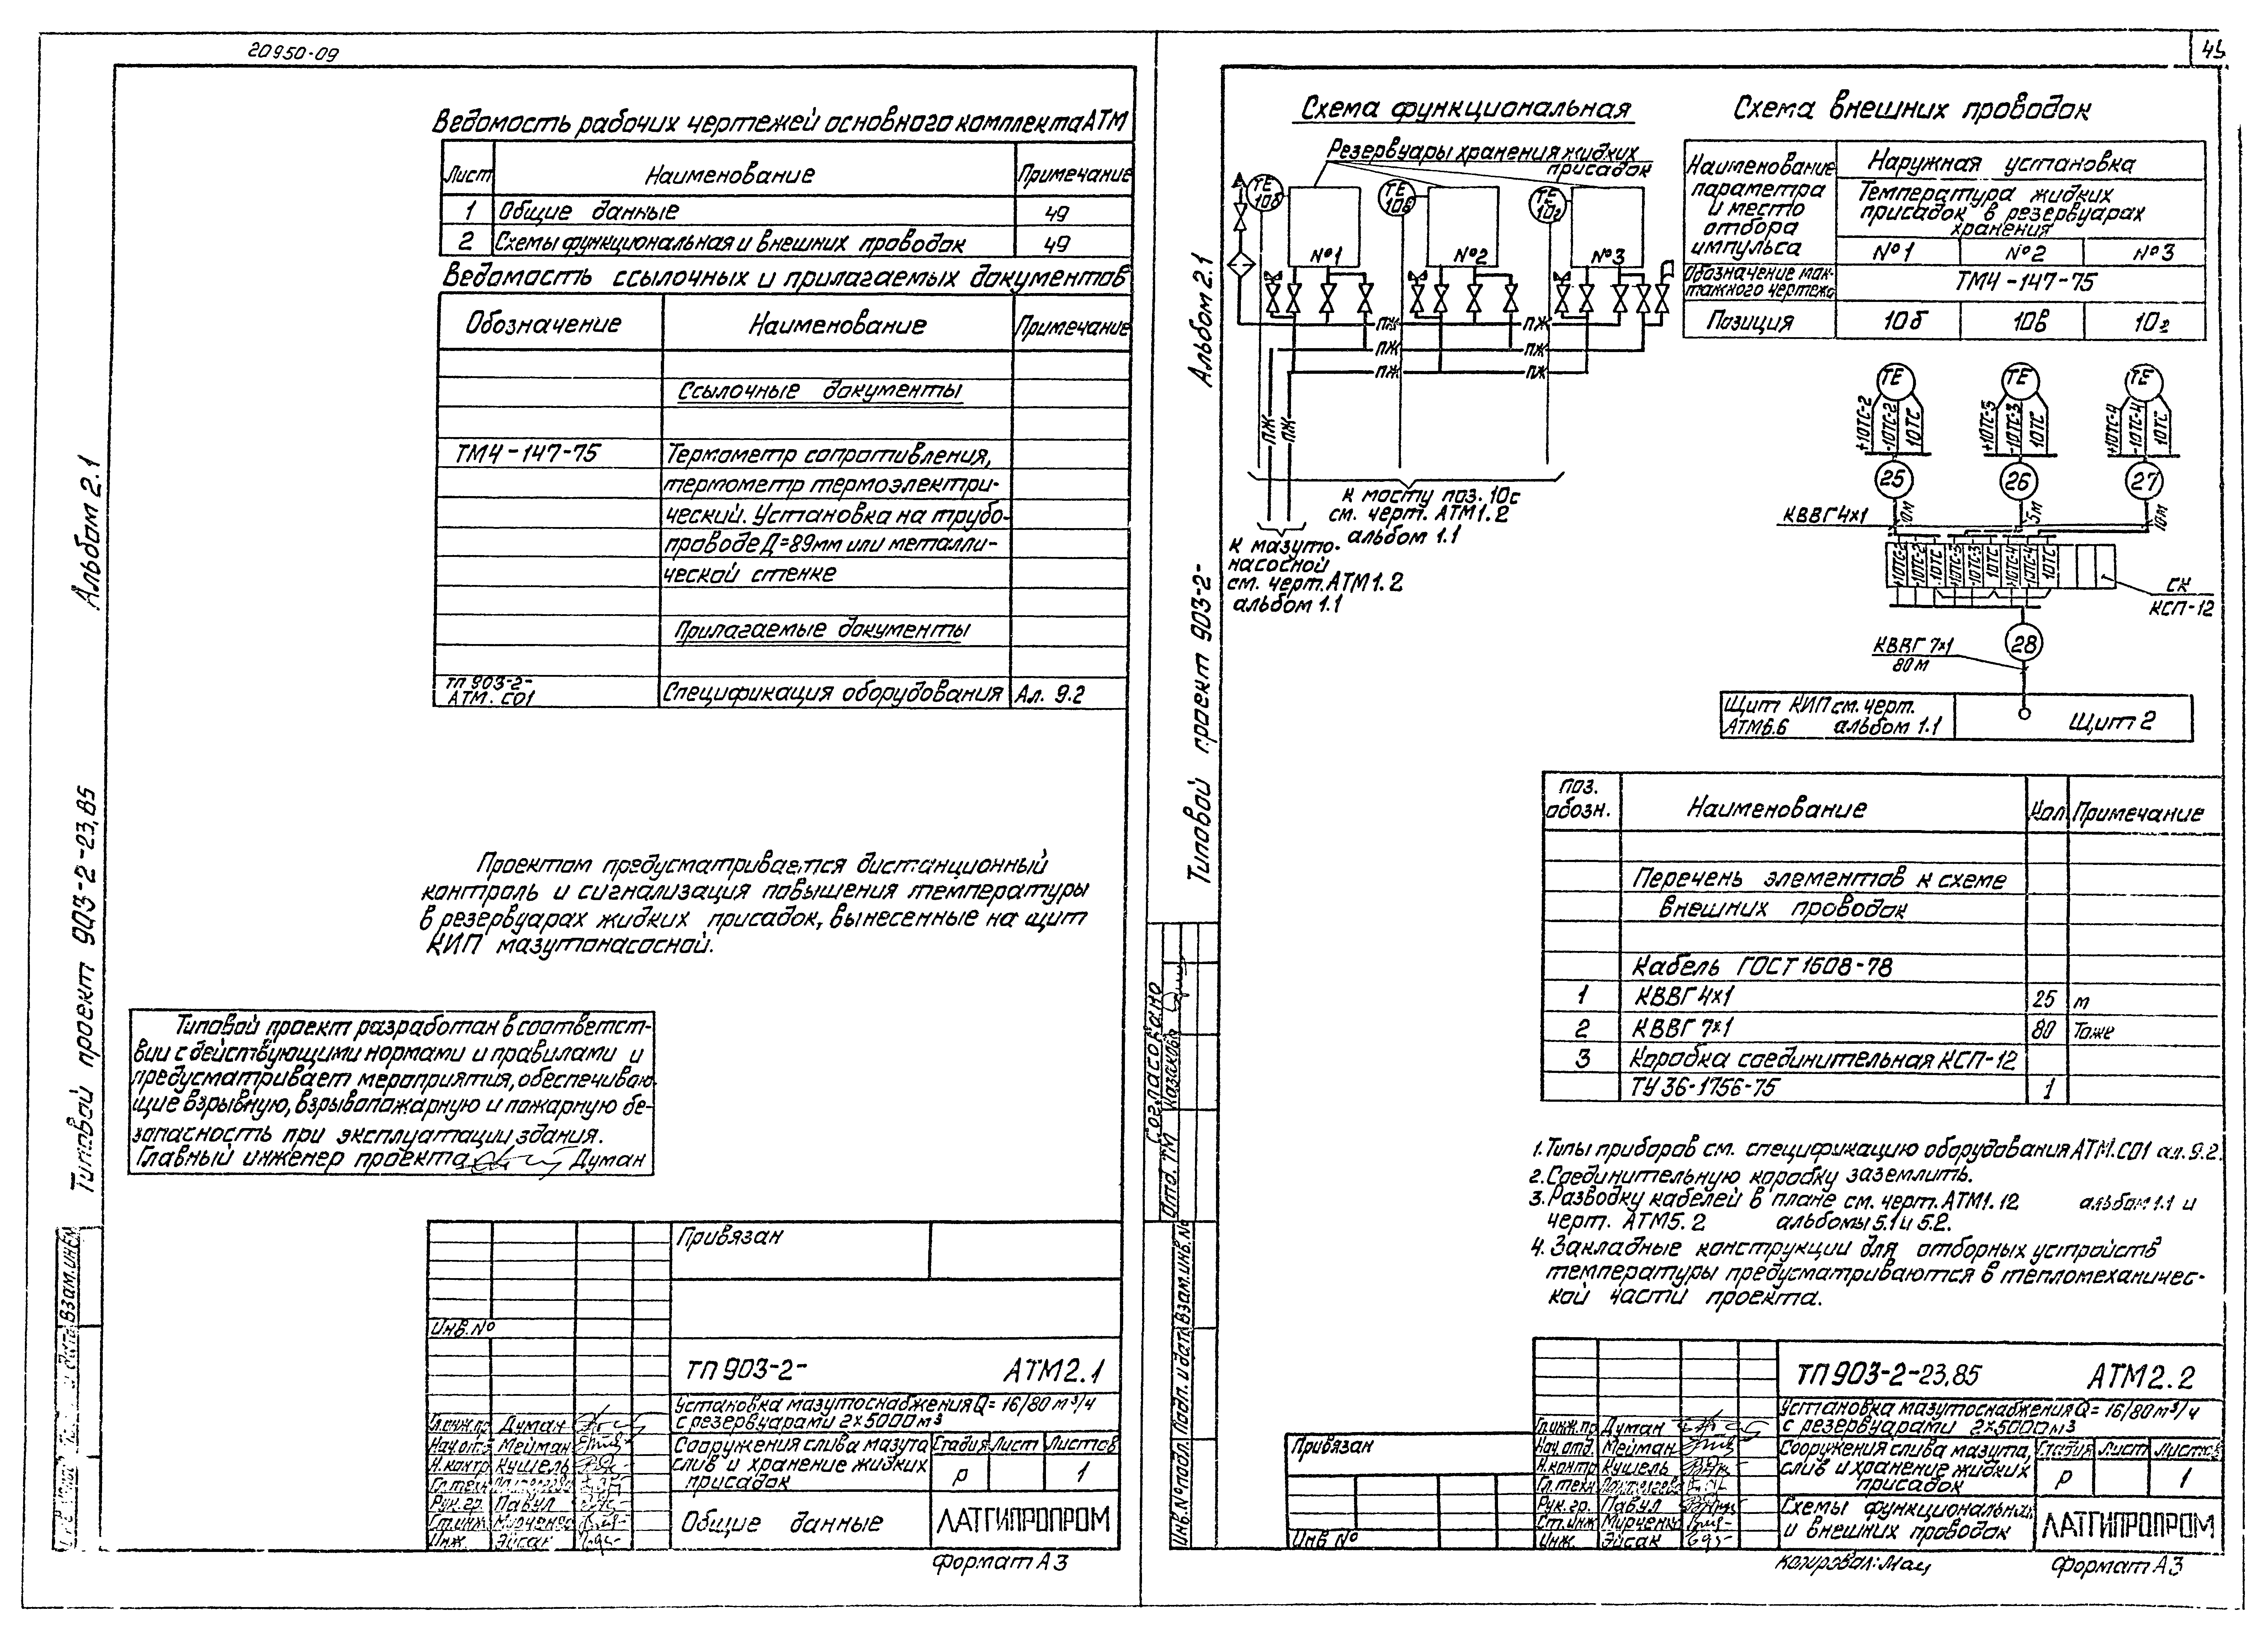 20950-09
Альбом 2.1
Типовой проект 903-2-23,85
Ведомость рабочих чертежей основного комплекта АТМ
Лист Наименование Примечание
1 Общие данные 49
2 Схемы функциональная и внешних проводок 49
Ведомость ссылочных и прилагаемых документов
Обозначение Наименование Примечание
Ссылочные документы
ТМ4-147-75 Термометр сопротивления,
термометр термоэлектри-
ческий. Установка на трубо-
проводе Д=89мм или металли-
ческой стенке
Прилагаемые документы
ТП 903-2-
АТМ. СО1 Спецификация оборудования Ал. 9.2
Проектом предусматривается дистанционный
контроль и сигнализация повышения температуры
в резервуарах жидких присадок, вынесенные на щит
КИП мазутонасосной.
Типовой проект разработан в соответст-
вии с действующими нормами и правилами и
предусматривает мероприятия, обеспечиваю-
щие взрывную, взрывопожарную и пожарную бе-
зопасность при эксплуатации здания.
Главный инженер проекта Думан
Взам.инв.№
Привязан
Инв.№
ТП 903-2- АТМ2.1
Установка мазутоснабжения Q=16/80 м³/ч
с резервуарами 2×5000м³
Сооружения слива мазута
слив и хранение жидких
присадок
Стадия Лист Листов
Р 1
Общие данные
ЛАТГИПРОПРОМ
Гл.инж.пр Думан
Нач.отд Мейман
Н.контр Кушель
Гл.техн
Рук.гр. Павул
Ст.инж Мирченко
Инж. Эйсак
Формат А3
45
Альбом 2.1
Типовой проект 903-2-
Схема функциональная
Резервуары хранения жидких
присадок
ТЕ 10б
ТЕ 10в
ТЕ 10г
№1
№2
№3
ПЖ ПЖ
ПЖ ПЖ
ПЖ ПЖ
ПЖ ПЖ
К мосту поз. 10с
см. черт. АТМ1.2
альбом 1.1
К мазуто-
насосной
см. черт. АТМ1.2
альбом 1.1
Схема внешних проводок
Наименование
параметра
и место
отбора
импульса
Наружная установка
Температура жидких
присадок в резервуарах
хранения
№1 №2 №3
Обозначение мон-
тажного чертежа
ТМ4-147-75
Позиция 10б 10в 10г
ТЕ ТЕ ТЕ
+10ТС-2 -10ТС-2 10ТС
+10ТС-3 -10ТС-3 10ТС
+10ТС-4 -10ТС-4 10ТС
25 26 27
КВВГ 4×1 10м 5м 10м
+10ТС-2 -10ТС-2 10ТС +10ТС-3 -10ТС-3 10ТС +10ТС-4 -10ТС-4 10ТС
СК
КСП-12
28
КВВГ 7×1
80м
Щит КИП см. черт.
АТМ6.6 альбом 1.1
Щит 2
Поз.
обозн. Наименование Кол Примечание
Перечень элементов к схеме
внешних проводок
Кабель ГОСТ 1508-78
1 КВВГ 4×1 25 м
2 КВВГ 7×1 80 Тоже
3 Коробка соединительная КСП-12
ТУ 36-1756-75 1
1. Типы приборов см. спецификацию оборудования АТМ.СО1 ал. 9.2.
2. Соединительную коробку заземлить.
3. Разводку кабелей в плане см. черт. АТМ1.12 альбом 1.1 и
черт. АТМ5.2 альбомы 5.1 и 5.2.
4. Закладные конструкции для отборных устройств
температуры предусматриваются в тепломеханичес-
кой части проекта.
Согласовано
Отд. ТМ Казакова
Взам.инв.№
Подп. и дата
Инв.№ подл.
Привязан
Инв №
ТП 903-2-23,85 АТМ2.2
Установка мазутоснабжения Q=16/80 м³/ч
с резервуарами 2×5000м³
Сооружения слива мазута,
слив и хранение жидких
присадок
Стадия Лист Листов
Р 1
Схемы функциональная
и внешних проводок
ЛАТГИПРОПРОМ
Гл.инж.пр Думан
Нач.отд. Мейман
Н.контр Кушель
Гл.техн
Рук.гр. Павул
Ст.инж Мирченко
Инж. Эйсак
Копировал:
Формат А3